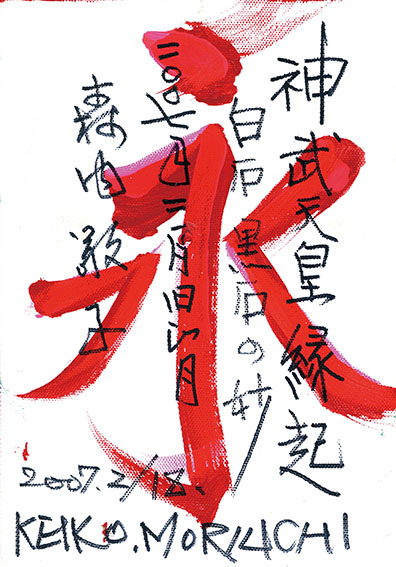 永
神武天皇縁起
白石黒石の妙
二〇〇七年二月旧正月
森内敬子
2007.2/18.
KEIKO.MORIUCHI